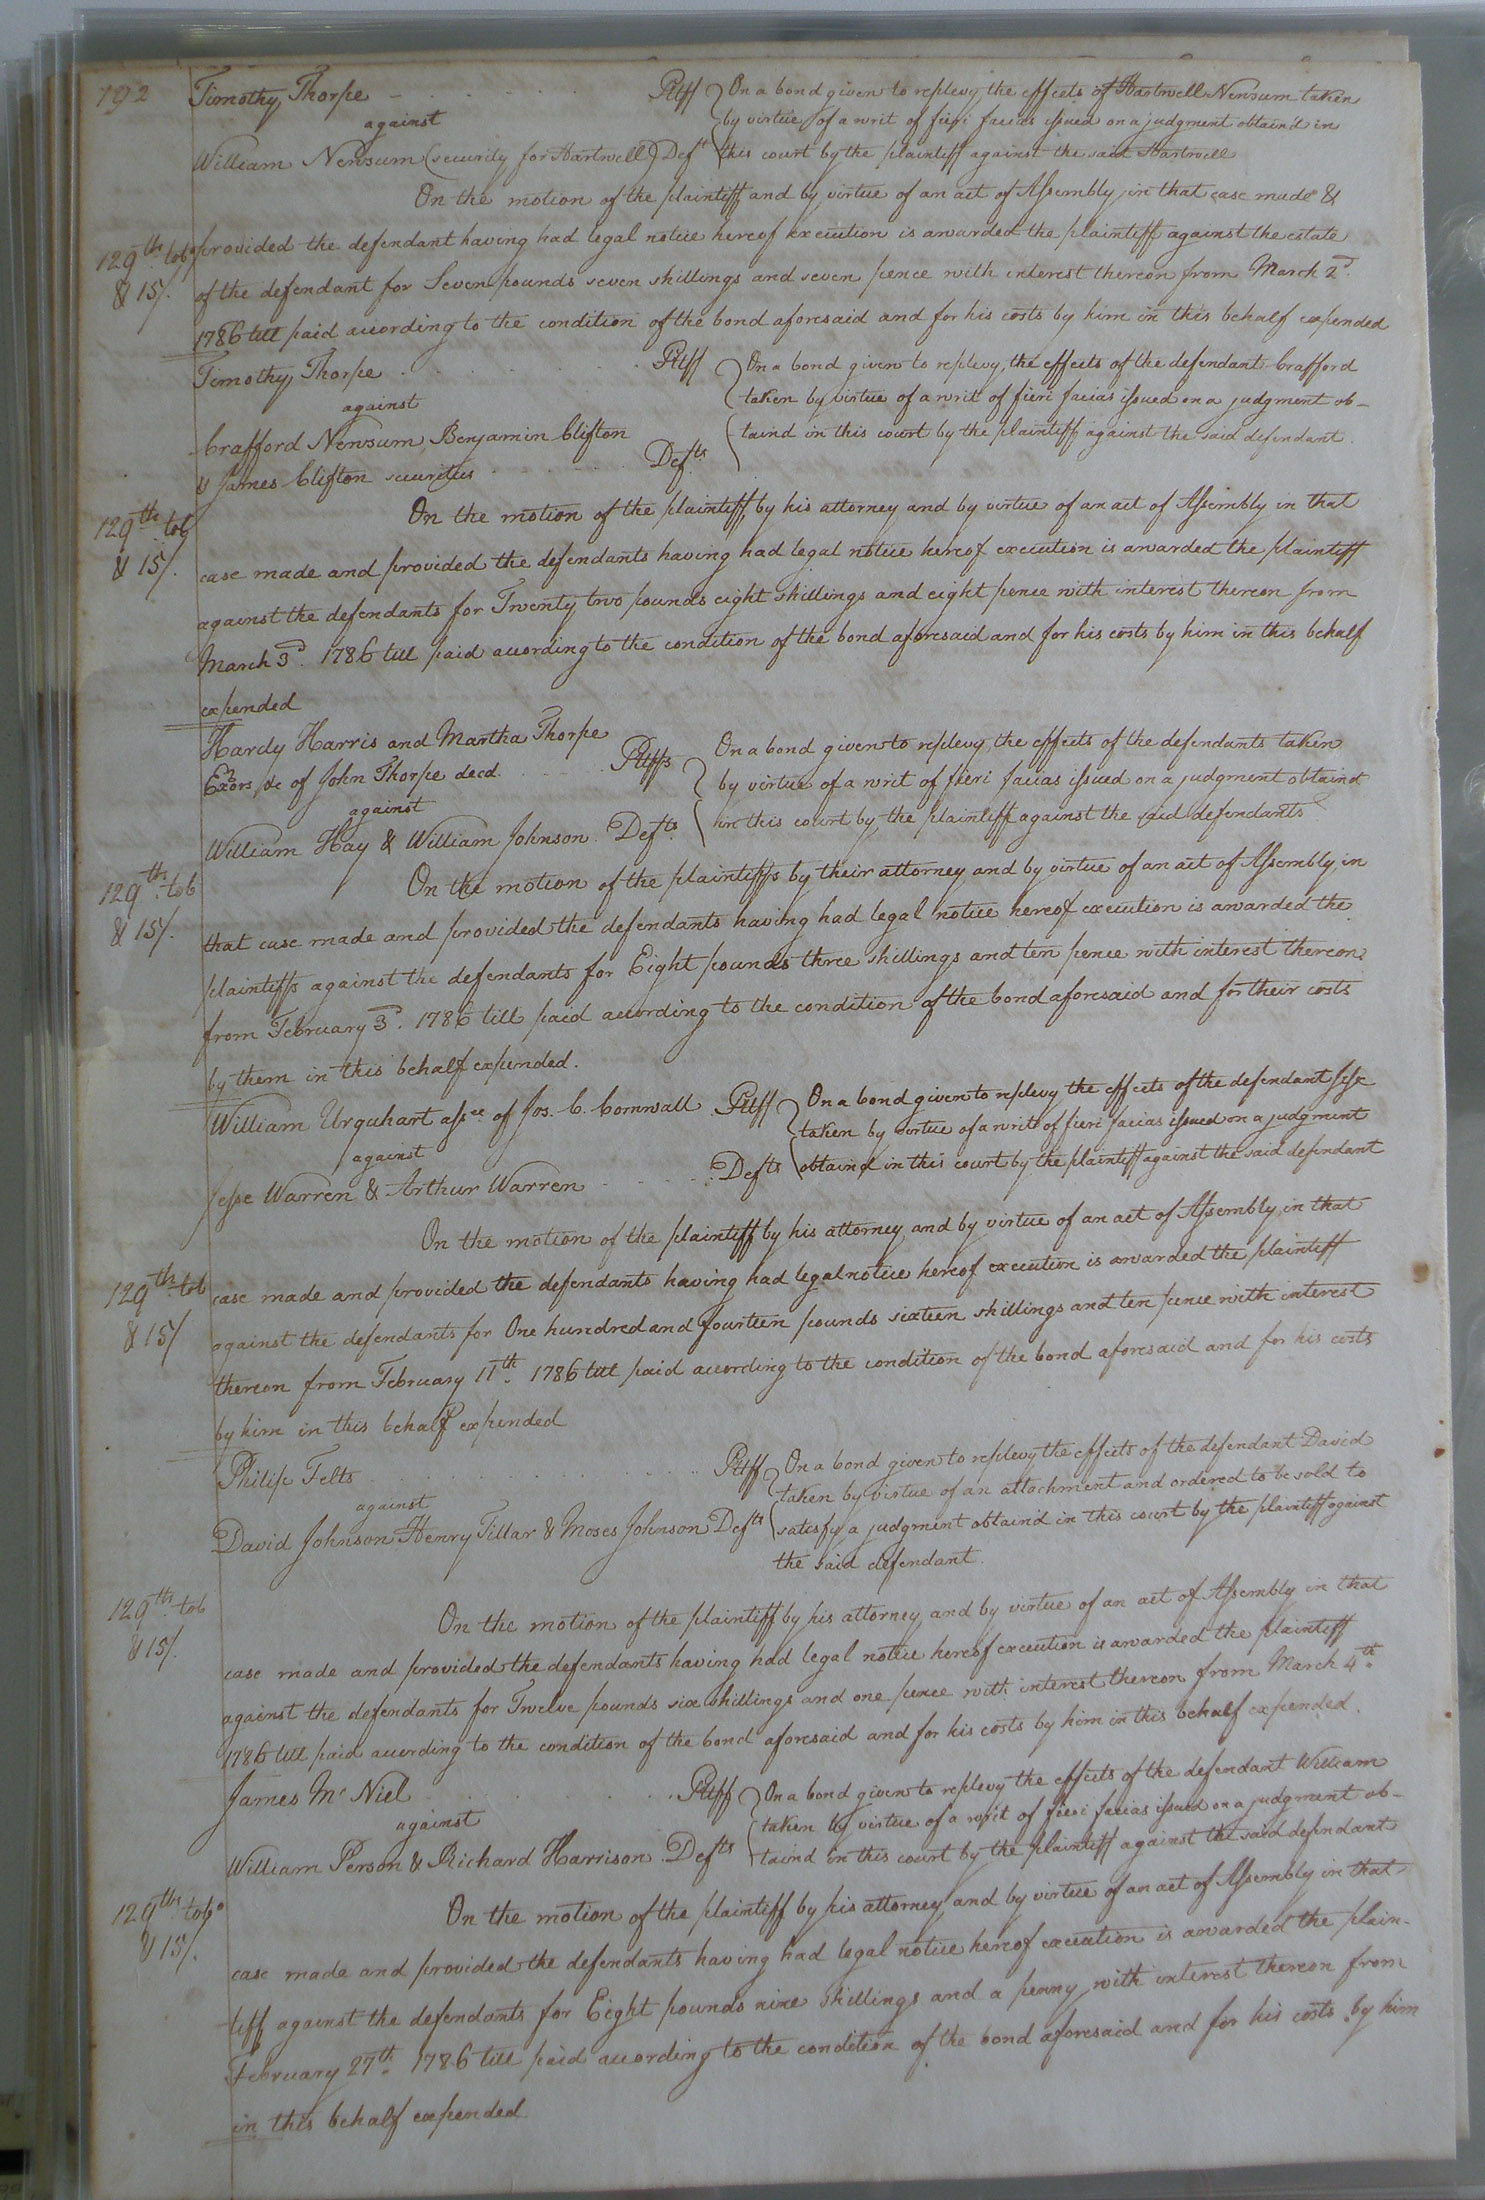 192
Timothy Thorpe Pltff
against
William Newsum (security for Hartwell) Deft
On a bond given to replevy the effects of Hartwell Newsum taken
by virtue of a writ of fieri facias issued on a judgment obtain'd in
this court by the plaintiff against the said Hartwell
On the motion of the plaintiff and by virtue of an act of Assembly in that case made &
129th tobo
& 15/.
provided the defendant having had legal notice hereof execution is awarded the plaintiff against the estate
of the defendant for Seven pounds seven shillings and seven pence with interest thereon from March 2d.
1786 till paid according to the condition of the bond aforesaid and for his costs by him in this behalf expended
Timothy Thorpe Pltff
against
Crafford Newsum, Benjamin Clifton
& James Clifton securities Defts
On a bond given to replevy the effects of the defendant Crafford
taken by virtue of a writ of fieri facias issued on a judgment ob-
taind in this court by the plaintiff against the said defendant.
129th tob
& 15/.
On the motion of the plaintiff by his attorney and by virtue of an act of Assembly in that
case made and provided the defendants having had legal notice hereof execution is awarded the plaintiff
against the defendants for Twenty two pounds eight shillings and eight pence with interest thereon from
March 3d. 1786 till paid according to the condition of the bond aforesaid and for his costs by him in this behalf
expended
Hardy Harris and Martha Thorpe
Exors &c of John Thorpe decd. Pltffs
against
William Hay & William Johnson. Defts
On a bond given to replevy the effects of the defendants taken
by virtue of a writ of fieri facias issued on a judgment obtaind
in this court by the plaintiff against the said defendants
129th tob
& 15/.
On the motion of the plaintiffs by their attorney and by virtue of an act of Assembly in
that case made and provided the defendants having had legal notice hereof execution is awarded the
plaintiffs against the defendants for Eight pounds three shillings and ten pence with interest thereon
from February 3d. 1786 till paid according to the condition of the bond aforesaid and for their costs
by them in this behalf expended.
William Urquhart assee of Jos. C. Cornwall Pltff
against
Jesse Warren & Arthur Warren Defts
On a bond given to replevy the effects of the defendant Jesse
taken by virtue of a writ of fieri facias issued on a judgment
obtaind in this court by the plaintiff against the said defendant
On the motion of the plaintiff by his attorney and by virtue of an act of Assembly in that
129th tob
& 15/
case made and provided the defendants having had legal notice hereof execution is awarded the plaintiff
against the defendants for One hundred and fourteen pounds sixteen shillings and ten pence with interest
thereon from February 11th. 1786 till paid according to the condition of the bond aforesaid and for his costs
by him in this behalf expended
Philip Felts Pltff
against
David Johnson Henry Tillar & Moses Johnson Defts
On a bond given to replevy the effects of the defendant David
taken by virtue of an attachment and ordered to be sold to
satisfy a judgment obtaind in this court by the plaintiff against
the said defendant.
129th tob
& 15/.
On the motion of the plaintiff by his attorney and by virtue of an act of Assembly in that
case made and provided the defendants having had legal notice hereof execution is awarded the plaintiff
against the defendants for Twelve pounds six shillings and one pence with interest thereon from March 4th.
1786 till paid according to the condition of the bond aforesaid and for his costs by him in this behalf expended.
James Mc Niel Pltff
against
William Person & Richard Harrison Defts
On a bond given to replevy the effects of the defendant William
taken by virtue of a writ of fieri facias issued on a judgment ob-
taind in this court by the plaintiff against the said defendant
129th tobo
& 15/.
On the motion of the plaintiff by his attorney and by virtue of an act of Assembly in that
case made and provided the defendants having had legal notice hereof execution is awarded the plain-
tiff against the defendants for Eight pounds nine shillings and a penny with interest thereon from
February 27th. 1786 till paid according to the condition of the bond aforesaid and for his costs by him
in this behalf expended.